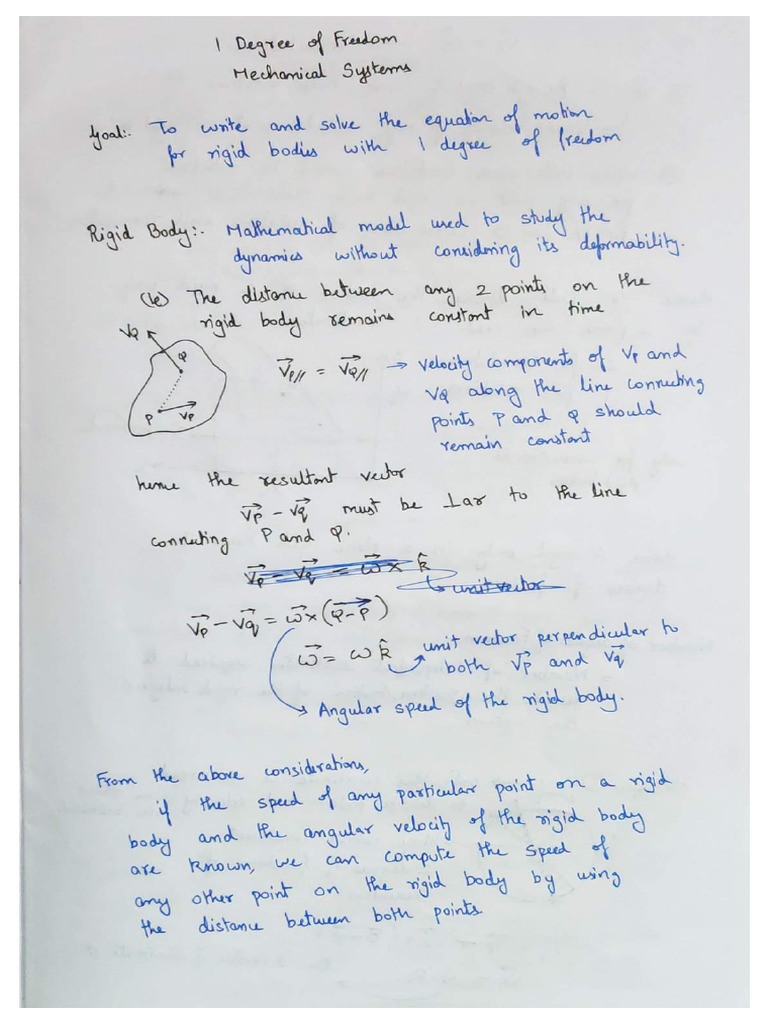 1 Degree of Freedom
Mechanical Systems
Goal:- To write and solve the equation of motion
for rigid bodies with 1 degree of freedom
Rigid Body:- Mathematical model used to study the
dynamics without considering its deformability.
(ie) The distance between any 2 points on the
rigid body remains constant in time
VQ
Q
P
VP
VP// = VQ// → Velocity components of VP and
VQ along the line connecting
points P and Q should
remain constant
hence the resultant vector
VP - Vq must be ⊥ar to the line
connecting P and Q.
VP - Vq = ω × k̂
↳ unit vector
VP - Vq = ω × (Q-P)
ω = ω k̂ unit vector perpendicular to
both VP and Vq
Angular speed of the rigid body.
From the above considerations,
if the speed of any particular point on a rigid
body and the angular velocity of the rigid body
are known, we can compute the speed of
any other point on the rigid body by using
the distance between both points.